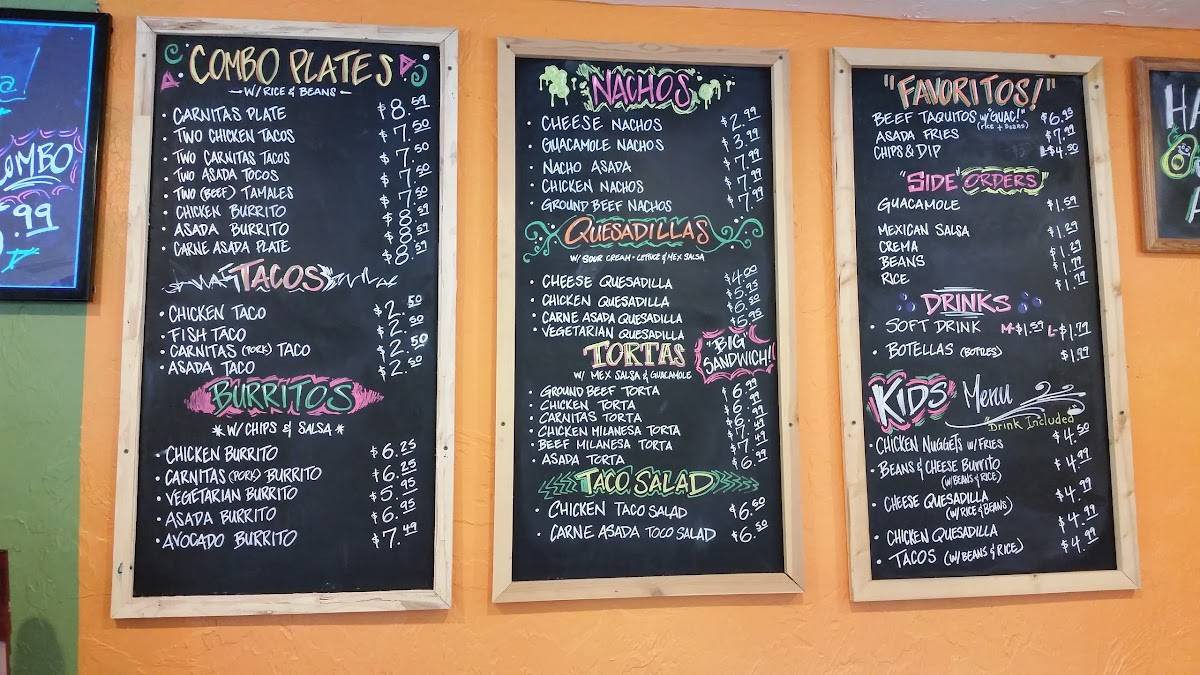 COMBO
.99
COMBO PLATES
W/ RICE & BEANS
• CARNITAS PLATE $8.59
• TWO CHICKEN TACOS $7.50
• TWO CARNITAS TACOS $7.50
• TWO ASADA TOCOS $7.50
• TWO (BEEF) TAMALES $7.50
• CHICKEN BURRITO $8.59
• ASADA BURRITO $8.59
• CARNE ASADA PLATE $8.59
TACOS
• CHICKEN TACO $2.50
• FISH TACO $2.50
• CARNITAS (PORK) TACO $2.50
• ASADA TACO $2.50
BURRITOS
* W/ CHIPS & SALSA *
• CHICKEN BURRITO $6.25
• CARNITAS (PORK) BURRITO $6.25
• VEGETARIAN BURRITO $5.95
• ASADA BURRITO $6.95
• AVOCADO BURRITO $7.49
NACHOS
• CHEESE NACHOS $2.99
• GUACAMOLE NACHOS $3.99
• NACHO ASADA $7.99
• CHICKEN NACHOS $7.99
• GROUND BEEF NACHOS $7.99
QUESADILLAS
W/ SOUR CREAM - LETTUCE & MEX SALSA
• CHEESE QUESADILLA $4.00
• CHICKEN QUESADILLA $5.95
• CARNE ASADA QUESADILLA $6.50
• VEGETARIAN QUESADILLA $5.95
TORTAS
"BIG"
SANDWICH!
W/ MEX SALSA & GUACAMOLE
• GROUND BEEF TORTA $6.99
• CHICKEN TORTA $6.99
• CARNITAS TORTA $6.99
• CHICKEN MILANESA TORTA $7.49
• BEEF MILANESA TORTA $7.49
• ASADA TORTA $6.99
TACO SALAD
• CHICKEN TACO SALAD $6.50
• CARNE ASADA TOCO SALAD $6.50
"FAVORITOS!"
BEEF TAQUITOS w/"GUAC!" $6.95
(rice + Beans)
ASADA FRIES $7.99
CHIPS & DIP L-$4.50
"SIDE ORDERS"
GUACAMOLE $1.59
MEXICAN SALSA $1.29
CREMA $1.29
BEANS $1.79
RICE $1.79
DRINKS
• SOFT DRINK M-$1.59 L-$1.79
• BOTELLAS (BOTTLES) $1.99
KIDS Menu
"Drink Included"
• CHICKEN NUGGETS W/ FRIES $4.50
• BEANS & CHEESE BURRITO $4.99
(W/BEANS & RICE)
• CHEESE QUESADILLA $4.99
(W/RICE & BEANS)
• CHICKEN QUESADILLA $4.99
• TACOS (W/ BEANS & RICE) $4.99